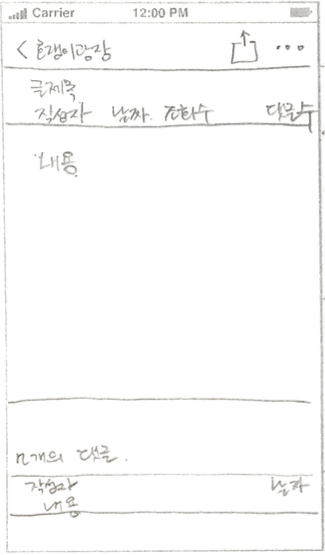 Carrier 12:00 PM
< 호갱이광장 •••
글제목
작성자 날짜 조회수 댓글수
내용
n개의 댓글.
작성자 날짜
내용